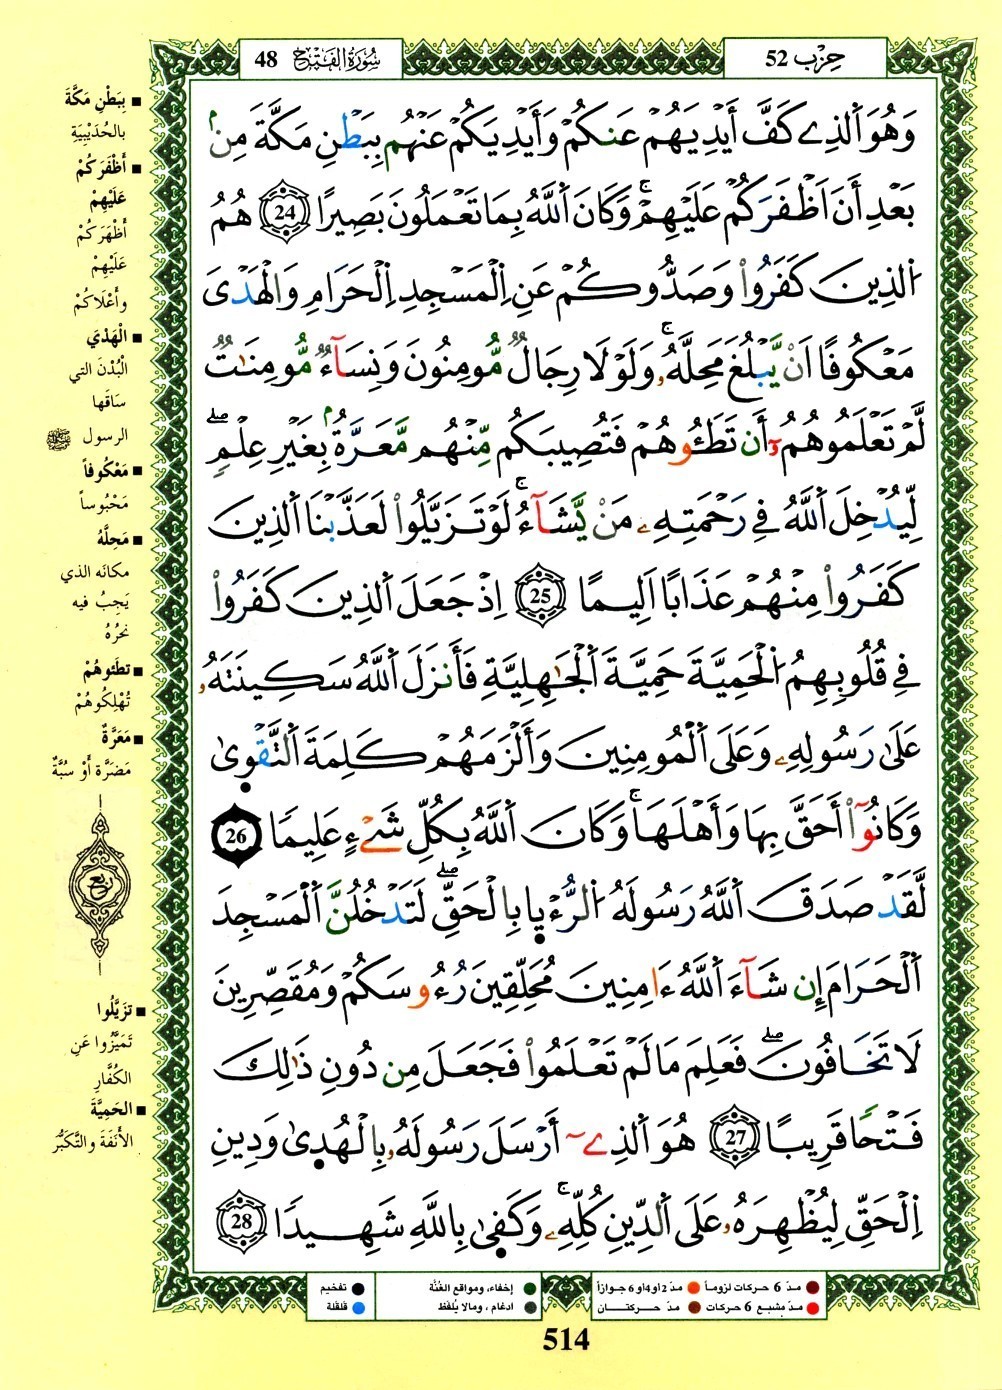 سُورَةُ الفَتْح 48
حِزْب 52
وَهُوَ اَ۬لذِے كَفَّ أَيْدِيَهُمْ عَنكُمْ وَأَيْدِيَكُمْ عَنْهُم بِبَطْنِ مَكَّةَ مِنۢ
بَعْدِ أَنَ اَظْفَرَكُمْ عَلَيْهِمْۚ وَكَانَ اَ۬للَّهُ بِمَا تَعْمَلُونَ بَصِيرًا 24 هُمُ
اُ۬لذِينَ كَفَرُواْ وَصَدُّوكُمْ عَنِ اِ۬لْمَسْجِدِ اِ۬لْحَرَامِ وَالْهَدْيَ
مَعْكُوفًا اَنْ يَّبْلُغَ مَحِلَّهُۥۚ وَلَوْلَا رِجَالٌ مُّومِنُونَ وَنِسَآءٌ مُّومِنَٰتٌ
لَّمْ تَعْلَمُوهُمُۥٓ أَن تَطَـُٔوهُمْ فَتُصِيبَكُم مِّنْهُم مَّعَرَّةُۢ بِغَيْرِ عِلْمٍۖ
لِّيُدْخِلَ اَ۬للَّهُ فِے رَحْمَتِهِۦ مَنْ يَّشَآءُۚ لَوْ تَزَيَّلُواْ لَعَذَّبْنَا اَ۬لذِينَ
كَفَرُواْ مِنْهُمْ عَذَابًا اَلِيمًا 25 اِذْ جَعَلَ اَ۬لذِينَ كَفَرُواْ
فِے قُلُوبِهِمُ اُ۬لْحَمِيَّةَ حَمِيَّةَ اَ۬لْجَٰهِلِيَّةِ فَأَنزَلَ اَ۬للَّهُ سَكِينَتَهُۥ
عَلَىٰ رَسُولِهِۦ وَعَلَى اَ۬لْمُومِنِينَ وَأَلْزَمَهُمْ كَلِمَةَ اَ۬لتَّقْو۪ىٰ
وَكَانُوٓاْ أَحَقَّ بِهَا وَأَهْلَهَاۚ وَكَانَ اَ۬للَّهُ بِكُلِّ شَےْءٍ عَلِيمًا 26
لَّقَدْ صَدَقَ اَ۬للَّهُ رَسُولَهُ اُ۬لرُّءْي۪ا بِالْحَقِّۖ لَتَدْخُلُنَّ اَ۬لْمَسْجِدَ
اَ۬لْحَرَامَ إِن شَآءَ اَ۬للَّهُ ءَامِنِينَ مُحَلِّقِينَ رُءُوسَكُمْ وَمُقَصِّرِينَ
لَا تَخَافُونَۖ فَعَلِمَ مَا لَمْ تَعْلَمُواْ فَجَعَلَ مِن دُونِ ذَٰلِكَ
فَتْحًا قَرِيبًا 27 هُوَ اَ۬لذِےٓ أَرْسَلَ رَسُولَهُۥ بِالْهُد۪ىٰ وَدِينِ
اِ۬لْحَقِّ لِيُظْهِرَهُۥ عَلَى اَ۬لدِّينِ كُلِّهِۦۚ وَكَف۪ىٰ بِاللَّهِ شَهِيدًا 28
■ بِبَطْنِ مَكَّةَ
بالحُدَيْبِيَةِ
■ أَظْفَرَكُمْ
عَلَيْهِمْ
أَظْهَرَكُمْ
عَلَيْهِمْ
وأَعْلَاكُمْ
■ الْهَدْيَ
الْبُدْنَ التي
سَاقَها
الرسول ﷺ
■ مَعْكُوفاً
مَحْبُوساً
■ مَحِلَّهُ
مكانَه الذي
يَجِبُ فيه
نحرُهُ
■ تطَئوهُمْ
تُهْلِكُوهُمْ
■ مَعَرَّةٌ
مَضَرَّة أَوْ سُبَّةٌ
ربع
■ تزَيَّلُوا
تَمَيَّزُوا عَنِ
الكُفَّارِ
■ الحَمِيَّةَ
الأَنَفَةَ والتَّكَبُّرَ
مدّ 6 حركات لزوماً
مدّ 2 أو 4 أو 6 جوازاً
إخفاء، ومواقع الغُنَّة
تفخيم
مدّ مشبع 6 حركات
مدّ حركتان
ادغام، وما لا يُلفَظ
قلقلة
514